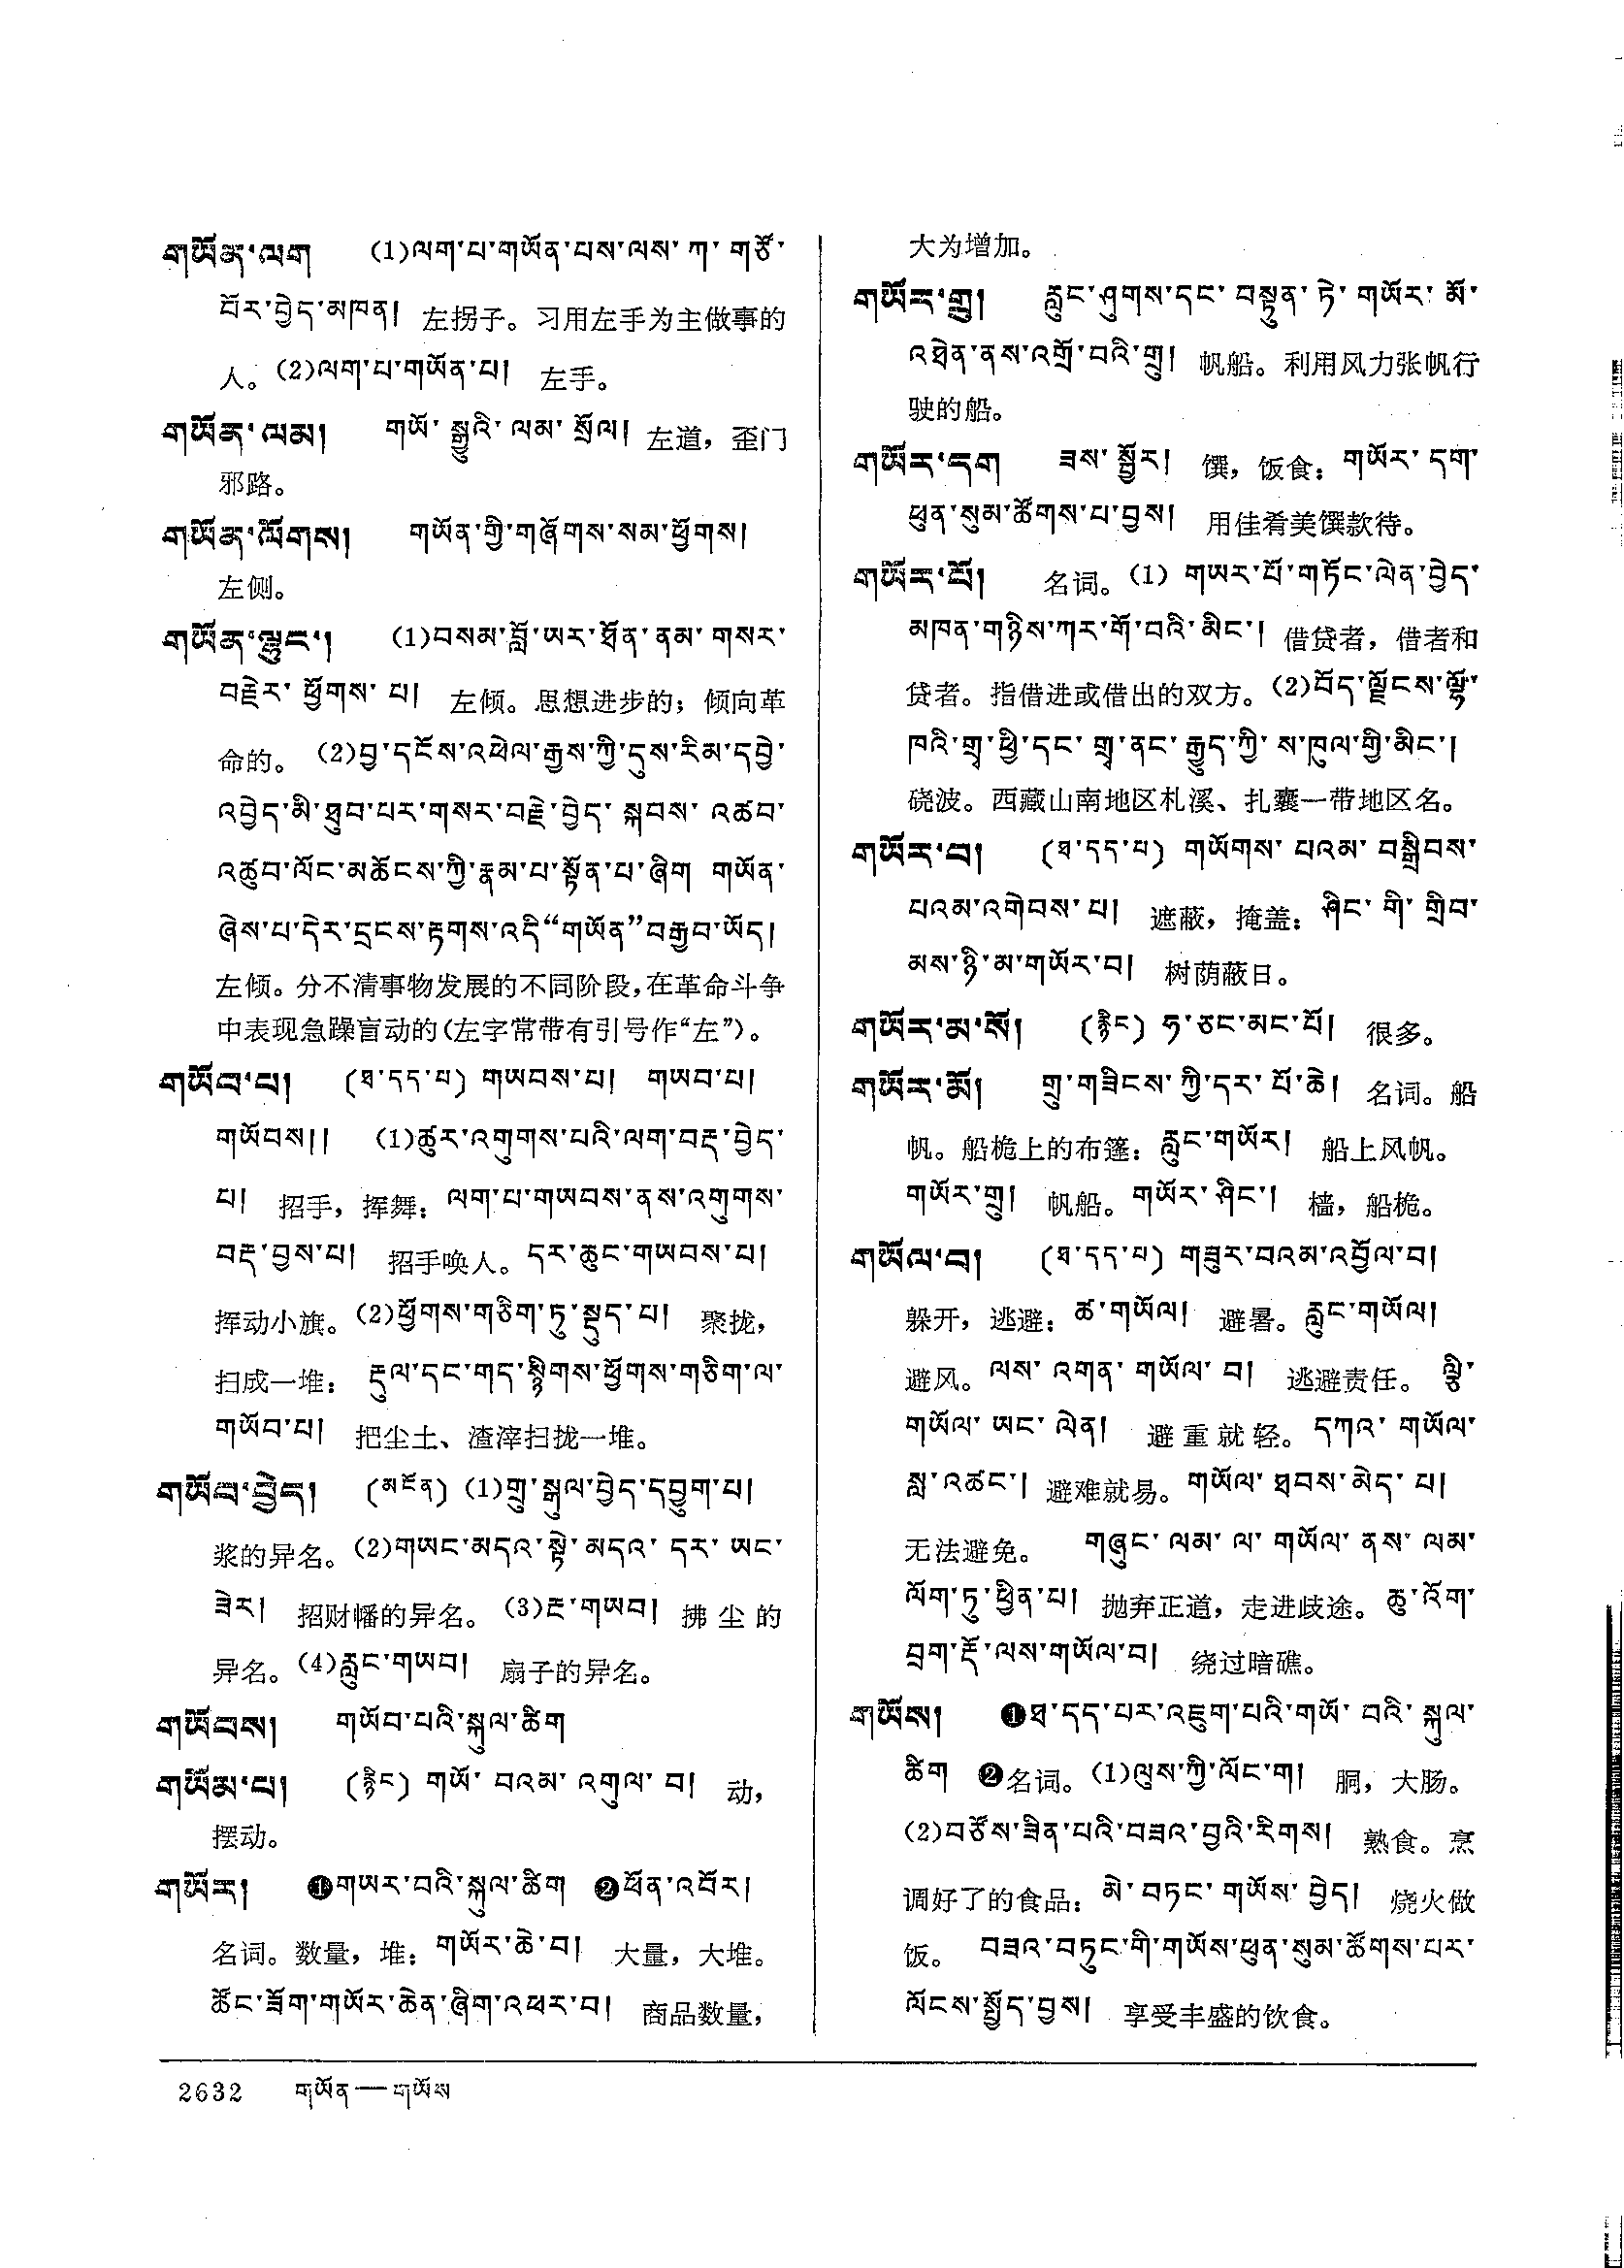 གཡོན་ལག (1)ལག་པ་གཡོན་པས་ལས་ ཀ་ གཙོ་
བོར་བྱེད་མཁན། 左拐子。习用左手为主做事的
人。(2)ལག་པ་གཡོན་པ། 左手。
གཡོན་ལམ། གཡོ་ སྒྱུའི་ ལམ་ སྲོལ། 左道，歪门
邪路。
གཡོན་ལོགས། གཡོན་གྱི་གཞོགས་སམ་ཕྱོགས།
左侧。
གཡོན་ལྷུང་། (1)བསམ་བློ་ཡར་ཐོན་ནམ་ གསར་
བརྗེར་ ཕྱོགས་ པ། 左倾。思想进步的；倾向革
命的。(2)བྱ་དངོས་འཕེལ་རྒྱས་ཀྱི་དུས་རིམ་དབྱེ་
འབྱེད་མི་ཐུབ་པར་གསར་བརྗེ་བྱེད་ སྐབས་ འཚབ་
འཚུབ་ལོང་མཆོངས་ཀྱི་རྣམ་པ་སྟོན་པ་ཞིག གཡོན་
ཞེས་པ་དེར་དྲངས་རྟགས་འདི“གཡོན”བརྒྱབ་ཡོད།
左倾。分不清事物发展的不同阶段，在革命斗争
中表现急躁盲动的(左字常带有引号作“左”)。
གཡོབ་པ། (ཐ་དད་པ) གཡབས་པ། གཡབ་པ།
གཡོབས།། (1)ཚུར་འགུགས་པའི་ལག་བརྡ་བྱེད་
པ། 招手，挥舞：ལག་པ་གཡབས་ནས་འགུགས་
བརྡ་བྱས་པ། 招手唤人。དར་ཆུང་གཡབས་པ།
挥动小旗。(2)ཕྱོགས་གཅིག་ཏུ་སྡུད་པ། 聚拢，
扫成一堆：རྡུལ་དང་གད་སྙིགས་ཕྱོགས་གཅིག་ལ་
གཡོབ་པ། 把尘土、渣滓扫拢一堆。
གཡོབ་བྱེད། (མངོན) (1)གྲུ་སྐུལ་བྱེད་དབྱུག་པ།
浆的异名。(2)གཡང་མདའ་སྟེ་མདའ་ དར་ ཡང་
ཟེར། 招财幡的异名。(3)རྔ་གཡབ། 拂尘的
异名。(4)རླུང་གཡབ། 扇子的异名。
གཡོབས། གཡོབ་པའི་སྐུལ་ཚིག
གཡོམ་པ། (རྙིང) གཡོ་ བའམ་ འགུལ་ བ། 动，
摆动。
གཡོར། ❶གཡར་བའི་སྐུལ་ཚིག ❷ཕོན་འབོར།
名词。数量，堆：གཡོར་ཆེ་བ། 大量，大堆。
ཚོང་ཟོག་གཡོར་ཆེན་ཞིག་འཕར་བ། 商品数量，
大为增加。
གཡོར་གྲུ། རླུང་ཤུགས་དང་ བསྟུན་ ཏེ་ གཡོར་ མོ་
འཐེན་ནས་འགྲོ་བའི་གྲུ། 帆船。利用风力张帆行
驶的船。
གཡོར་དག ཟས་ སྦྱོར། 馔，饭食：གཡོར་ དག་
ཕུན་སུམ་ཚོགས་པ་བྱས། 用佳肴美馔款待。
གཡོར་པོ། 名词。(1) གཡར་པོ་གཏོང་ལེན་བྱེད་
མཁན་གཉིས་ཀར་གོ་བའི་མིང་། 借贷者，借者和
贷者。指借进或借出的双方。(2)བོད་ལྗོངས་ལྷོ་
ཁའི་གྲྭ་ཕྱི་དང་ གྲྭ་ནང་ རྒྱུད་ཀྱི་ ས་ཁུལ་གྱི་མིང་།
硗波。西藏山南地区札溪、扎囊一带地区名。
གཡོར་བ། (ཐ་དད་པ) གཡོགས་ པའམ་ བསྒྲིབས་
པའམ་འགེབས་ པ། 遮蔽，掩盖：ཤིང་ གི་ གྲིབ་
མས་ཉི་མ་གཡོར་བ། 树荫蔽日。
གཡོར་མ་སོ། (རྙིང) ཧ་ཅང་མང་པོ། 很多。
གཡོར་མོ། གྲུ་གཟིངས་ ཀྱི་དར་ པོ་ཆེ། 名词。船
帆。船桅上的布篷：རླུང་གཡོར། 船上风帆。
གཡོར་གྲུ། 帆船。གཡོར་ཤིང་། 樯，船桅。
གཡོལ་བ། (ཐ་དད་པ) གཟུར་བའམ་འབྱོལ་བ།
躲开，逃避：ཚ་གཡོལ། 避暑。རླུང་གཡོལ།
避风。ལས་ འགན་ གཡོལ་ བ། 逃避责任。 ལྕི་
གཡོལ་ ཡང་ ལེན། 避重就轻。དཀའ་ གཡོལ་
སླ་འཚང་། 避难就易。གཡོལ་ ཐབས་མེད་ པ།
无法避免。 གཞུང་ ལམ་ ལ་ གཡོལ་ ནས་ ལམ་
ལོག་ཏུ་ཕྱིན་པ། 抛弃正道，走进歧途。ཆུ་འོག་
བྲག་རྡོ་ལས་གཡོལ་བ། 绕过暗礁。
གཡོས། ❶ཐ་དད་པར་འཇུག་པའི་གཡོ་ བའི་ སྐུལ་
ཚིག ❷名词。(1)ལུས་ཀྱི་ལོང་ག། 胴，大肠。
(2)བཙོས་ཟིན་པའི་བཟའ་བྱའི་རིགས། 熟食。烹
调好了的食品：མེ་ བཏང་ གཡོས་ བྱེད། 烧火做
饭。 བཟའ་བཏུང་གི་གཡོས་ཕུན་སུམ་ཚོགས་པར་
ལོངས་སྤྱོད་བྱས། 享受丰盛的饮食。
2632 གཡོན—གཡོས